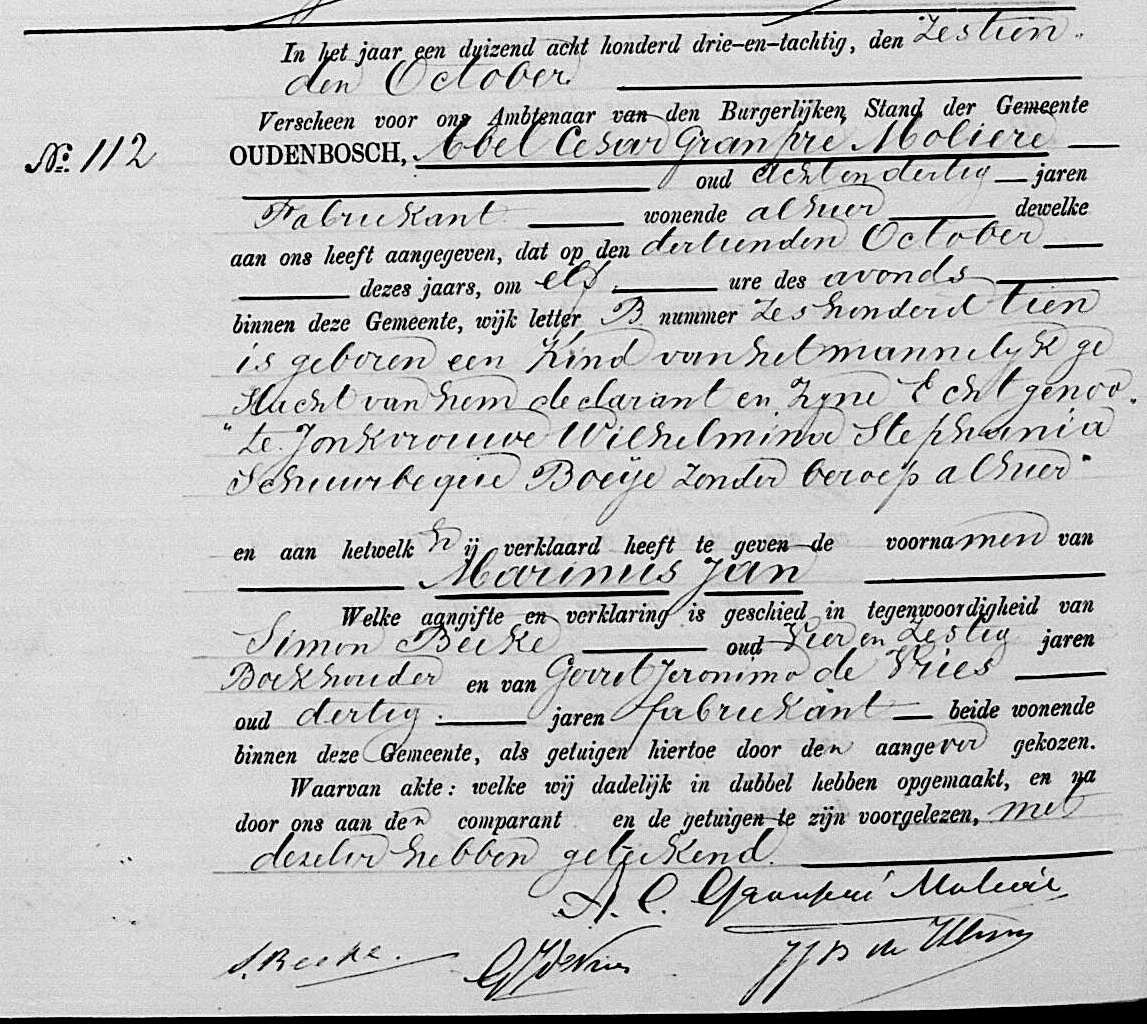 In het jaar een duizend acht honderd drie-en-tachtig, den Zestien
den October
Verscheen voor ons Ambtenaar van den Burgerlijken Stand der Gemeente
No. 112 OUDENBOSCH, Abel Cesar Granpre Moliere
oud Achtendertig jaren
Fabriekant wonende alhier dewelke
aan ons heeft aangegeven, dat op den dertienden October
dezes jaars, om elf ure des avonds
binnen deze Gemeente, wijk letter B nummer Zeshonderd tien
is geboren een Kind van het mannelyk ge
slacht van hem declarant en Zyne Echtgenoo
te Jonkvrouwe Wilhelmina Stephania
Schuurbeque Boeÿe Zonder beroep alhier
en aan hetwelk hij verklaard heeft te geven de voornamen van
Marinus Jan
Welke aangifte en verklaring is geschied in tegenwoordigheid van
Simon Beeke oud Vier en Zestig jaren
Boekhouder en van Gerrit Jeronimo de Vries
oud dertig jaren fabriekant beide wonende
binnen deze Gemeente, als getuigen hiertoe door den aangever gekozen.
Waarvan akte: welke wij dadelijk in dubbel hebben opgemaakt, en na
door ons aan den comparant en de getuigen te zijn voorgelezen, met
dezelve hebben geteekend.
A. C. Granpré Molière
S. Beeke. GJdeVries